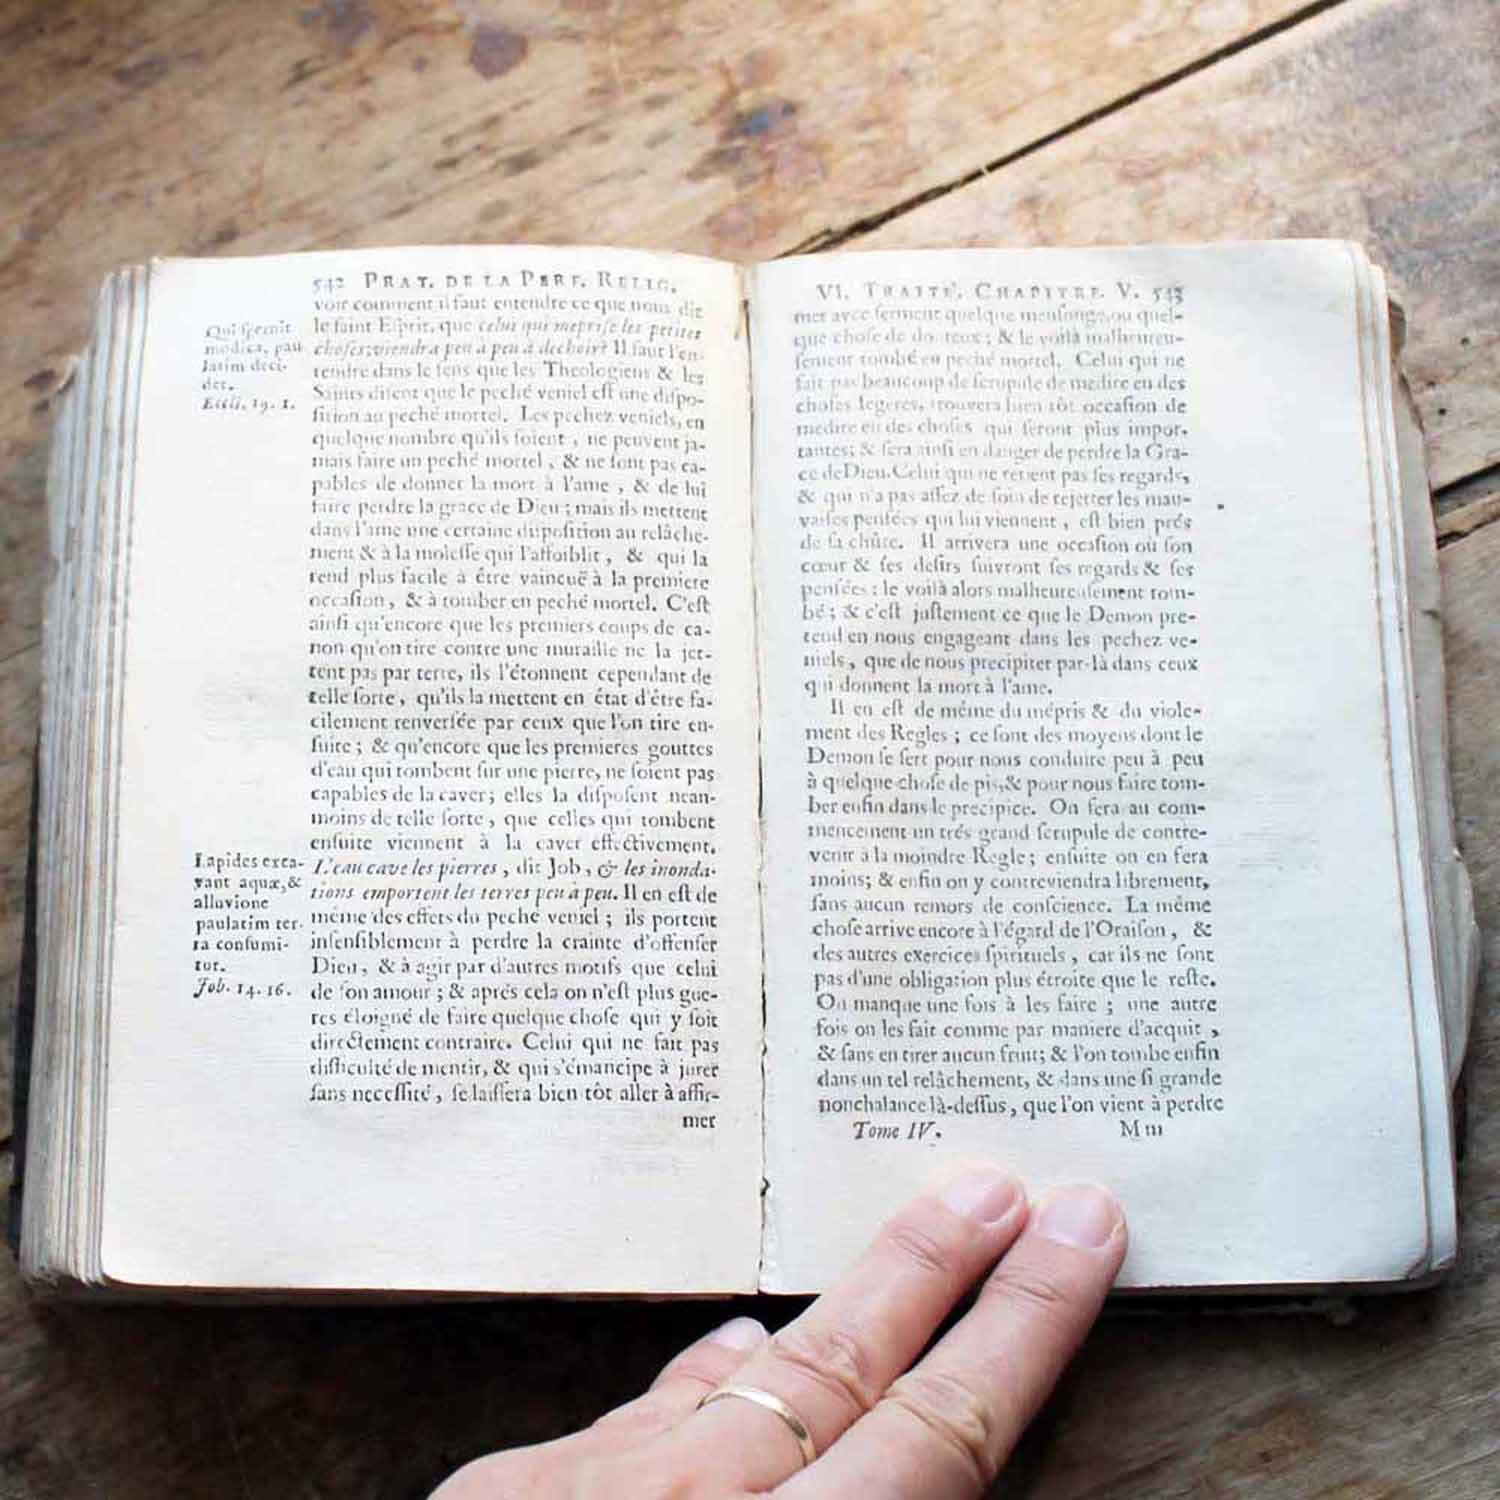 542 PRAT. DE LA PERF. RELIG.
voir comment il faut entendre ce que nous dit
le saint Eſprit, que celui qui mépriſe les petites
choſes, viendra peu à peu à déchoir? Il faut l'en-
tendre dans le ſens que les Theologiens & les
Saints diſent que le peché veniel eſt une diſpo-
ſition au peché mortel. Les pechez veniels, en
quelque nombre qu'ils ſoient, ne peuvent ja-
mais faire un peché mortel, & ne ſont pas ca-
pables de donner la mort à l'ame, & de lui
faire perdre la grace de Dieu; mais ils mettent
dans l'ame une certaine diſpoſition au relâche-
ment & à la moleſſe qui l'affoiblit, & qui la
rend plus facile à être vaincuë à la premiere
occaſion, & à tomber en peché mortel. C'eſt
ainſi qu'encore que les premiers coups de ca-
non qu'on tire contre une muraille ne la jet-
tent pas par terre, ils l'étonnent cependant de
telle ſorte, qu'ils la mettent en état d'être fa-
cilement renverſée par ceux que l'on tire en-
ſuite; & qu'encore que les premieres gouttes
d'eau qui tombent ſur une pierre, ne ſoient pas
capables de la caver; elles la diſpoſent nean-
moins de telle ſorte, que celles qui tombent
enſuite viennent à la caver effectivement.
L'eau cave les pierres, dit Job, & les inonda-
tions emportent les terres peu à peu. Il en eſt de
même des effets du peché veniel; ils portent
inſenſiblement à perdre la crainte d'offenſer
Dieu, & à agir par d'autres motifs que celui
de ſon amour; & aprés cela on n'eſt plus gue-
res éloigné de faire quelque choſe qui y ſoit
directement contraire. Celui qui ne fait pas
difficulté de mentir, & qui s'émancipe à jurer
ſans neceſſité, ſe laiſſera bien tôt aller à affir-
mer
Qui ſpernit
modica, pau-
latim deci-
det.
Eccli. 19. 1.
Lapides exca-
vant aquæ, &
alluvione
paulatim ter-
ra conſumi-
tur.
Job. 14. 16.
VI. TRAITÉ, CHAPITRE. V. 543
mer avec ſerment quelque menſonge, ou quel-
que choſe de douteux; & le voilà malheureu-
ſement tombé en peché mortel. Celui qui ne
fait pas beaucoup de ſcrupule de médire en des
choſes legeres, trouvera bien tôt occaſion de
medire en des choſes qui ſeront plus impor-
tantes; & ſera ainſi en danger de perdre la Gra-
ce de Dieu. Celui qui ne retient pas ſes regards,
& qui n'a pas aſſez de ſoin de rejetter les mau-
vaiſes penſées qui lui viennent, eſt bien prés
de ſa chûte. Il arrivera une occaſion où ſon
cœur & ſes deſirs ſuivront ſes regards & ſes
penſées: le voilà alors malheureuſement tom-
bé; & c'eſt juſtement ce que le Demon pre-
tend en nous engageant dans les pechez ve-
niels, que de nous precipiter par-là dans ceux
qui donnent la mort à l'ame.
Il en eſt de même du mépris & du viole-
ment des Regles; ce ſont des moyens dont le
Demon ſe ſert pour nous conduire peu à peu
à quelque choſe de pis, & pour nous faire tom-
ber enfin dans le precipice. On ſera au com-
mencement un trés grand ſcrupule de contre-
venir à la moindre Regle; enſuite on en fera
moins; & enfin on y contreviendra librement,
ſans aucun remors de conſcience. La même
choſe arrive encore à l'égard de l'Oraiſon, &
des autres exercices ſpirituels, car ils ne ſont
pas d'une obligation plus étroite que le reſte.
On manque une fois à les faire; une autre
fois on les fait comme par maniere d'acquit,
& ſans en tirer aucun fruit; & l'on tombe enfin
dans un tel relâchement, & dans une ſi grande
nonchalance là-deſſus, que l'on vient à perdre
Tome IV. M m